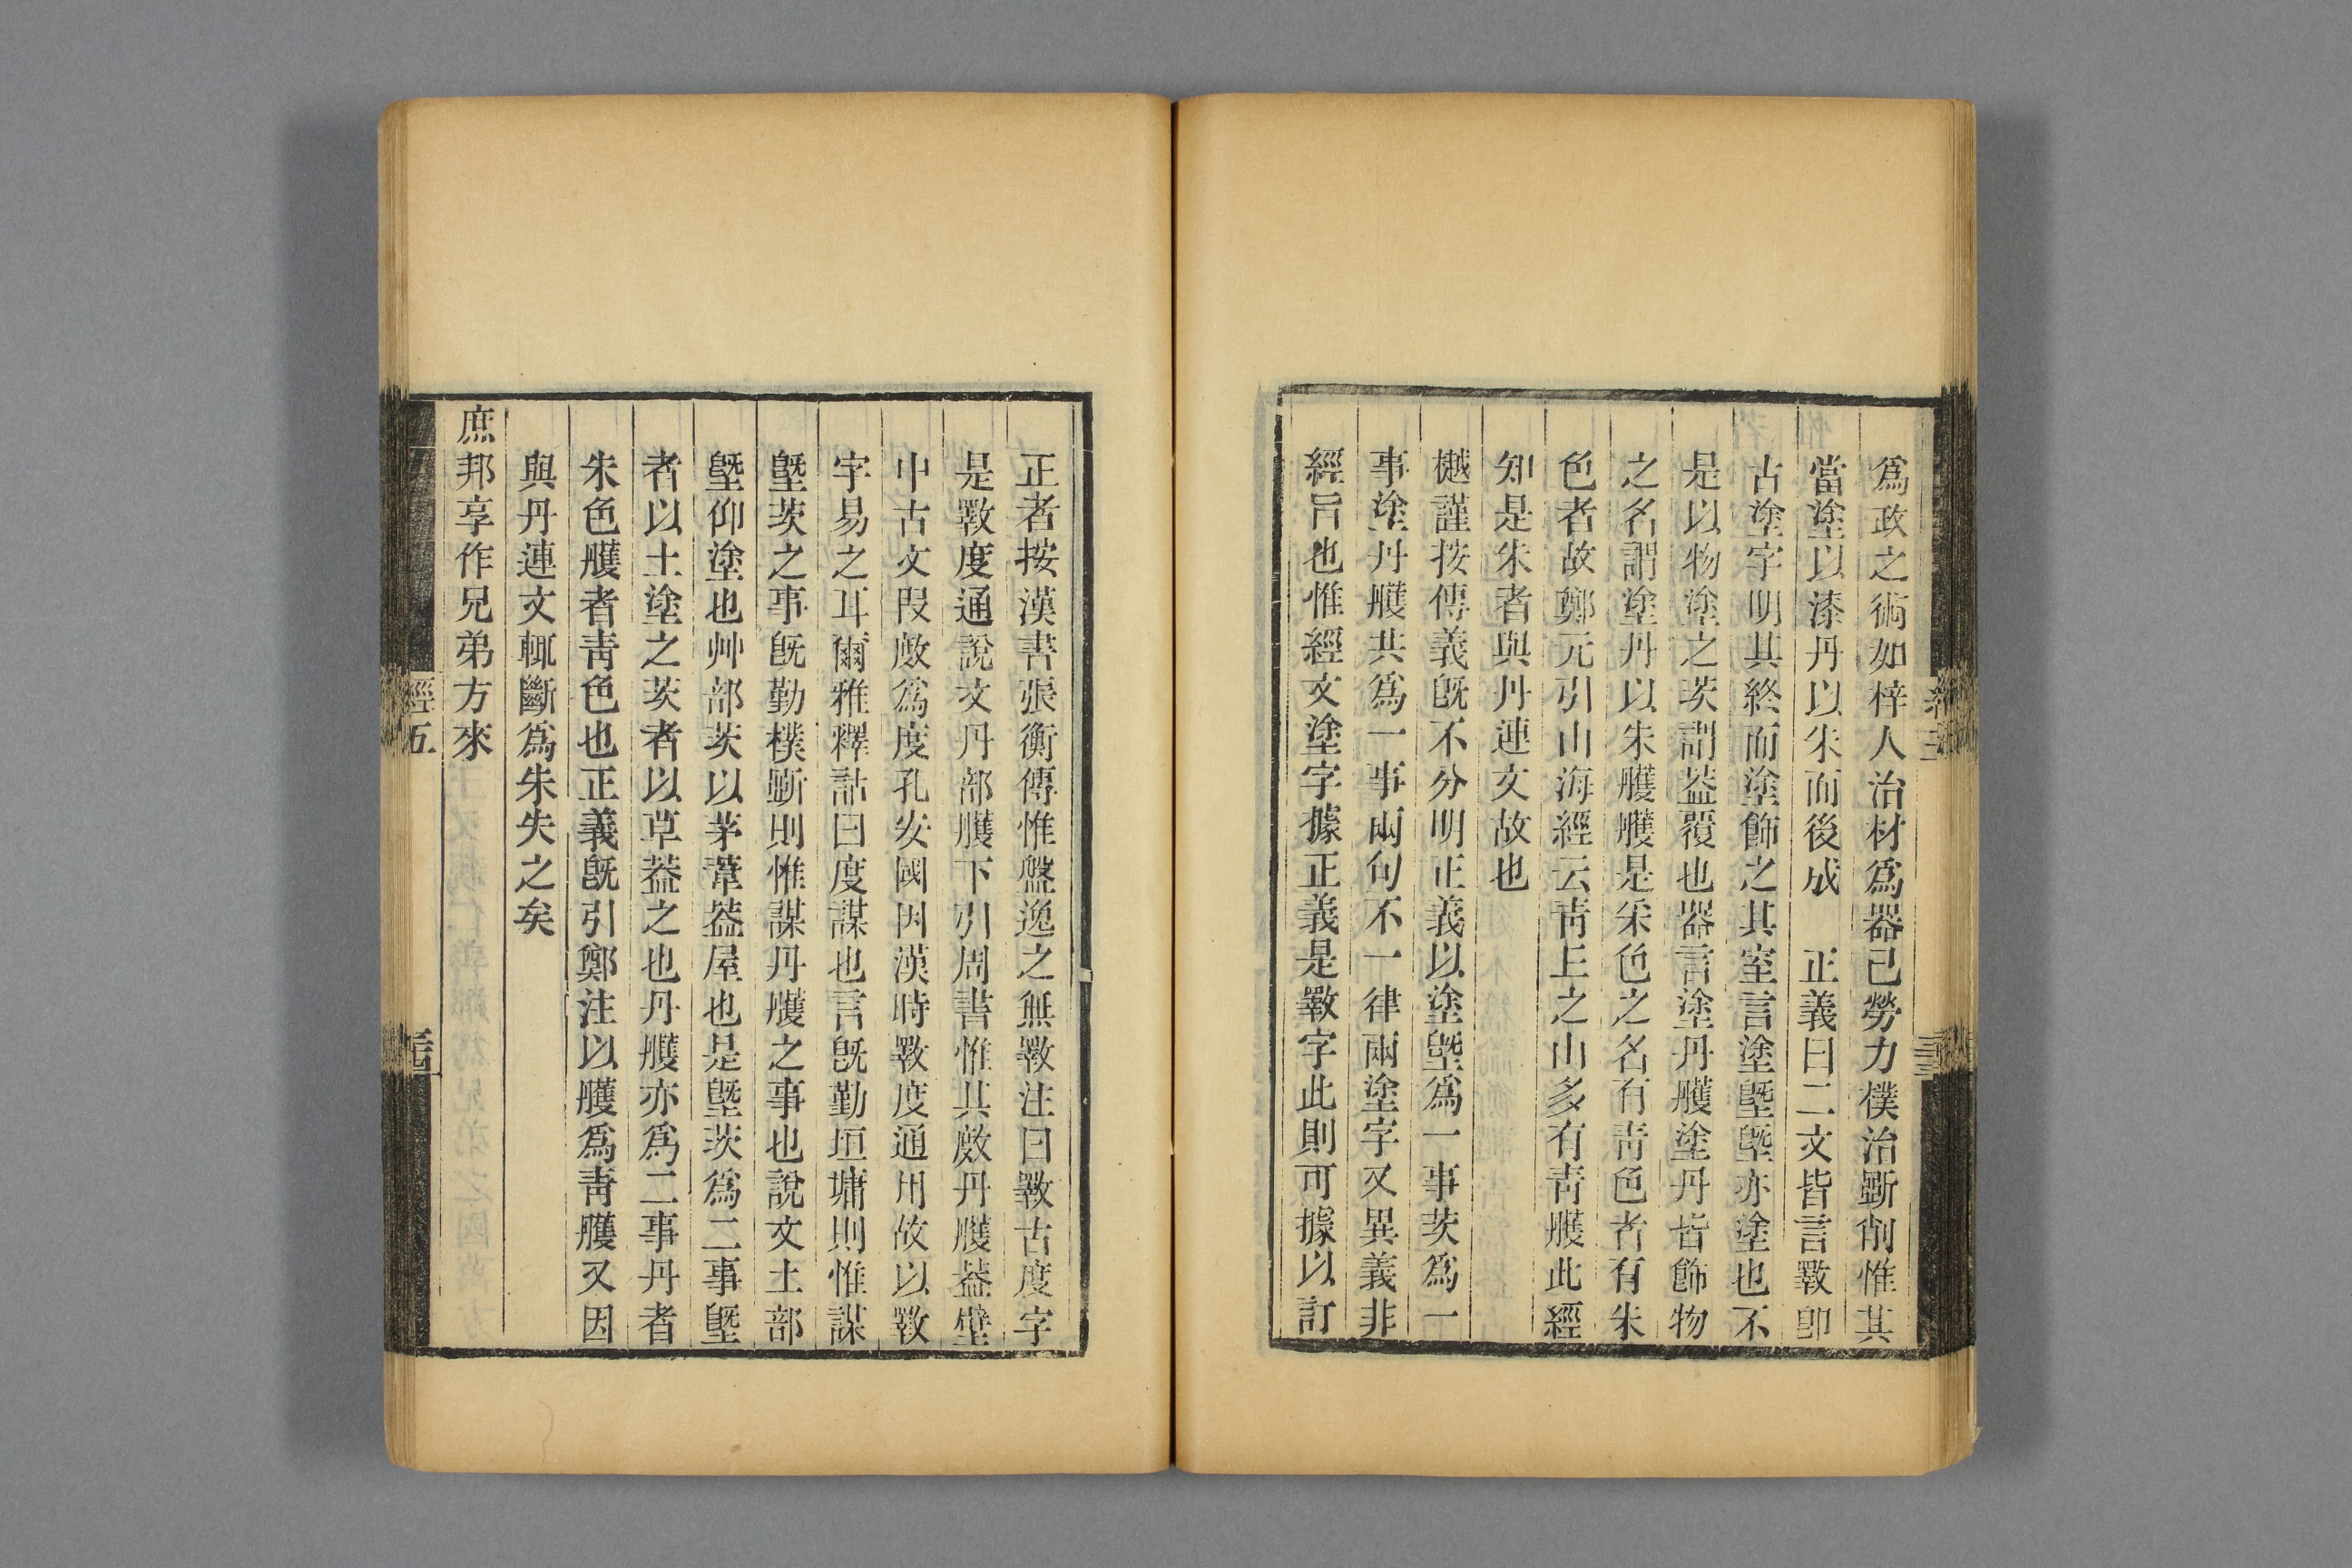 爲政之術如梓人治材爲器已勞力樸治斲削惟其
當塗以漆丹以朱而後成　正義曰二文皆言斁卽
古塗字明其終而塗飾之其室言塗墍墍亦塗也不
是以物塗之茨謂葢覆也器言塗丹雘塗丹皆飾物
之名謂塗丹以朱雘雘是采色之名有靑色者有朱
色者故鄭元引山海經云靑丘之山多有靑雘此經
知是朱者與丹連文故也
樾謹按傳義旣不分明正義以塗墍爲一事茨爲一
事塗丹雘共爲一事兩句不一律兩塗字又異義非
經旨也惟經文塗字據正義是斁字此則可據以訂
正者按漢書張衡傳惟盤逸之無斁注曰斁古度字
是斁度通說文丹部雘下引周書惟其𢾖丹雘葢壁
中古文叚𢾖爲度孔安國因漢時斁度通用故以斁
字易之耳爾雅釋詁曰度謀也言旣勤垣墉則惟謀
墍茨之事旣勤樸斲則惟謀丹雘之事也說文土部
墍仰塗也艸部茨以茅葦葢屋也是墍茨爲二事墍
者以土塗之茨者以草葢之也丹雘亦爲二事丹者
朱色雘者靑色也正義旣引鄭注以雘爲靑雘又因
與丹連文輒斷爲朱失之矣
庶邦享作兄弟方來
經五